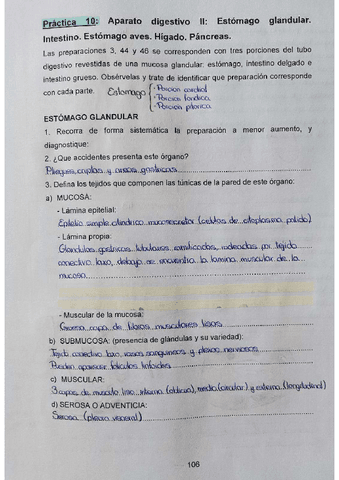 Práctica 10: Aparato digestivo II: Estómago glandular.
Intestino. Estómago aves. Hígado. Páncreas.
Las preparaciones 3, 44 y 46 se corresponden con tres porciones del tubo
digestivo revestidas de una mucosa glandular: estómago, intestino delgado e
intestino grueso. Obsérvelas y trate de identificar que preparación corresponde
con cada parte. Estómago { - Porción cardial
- Porción fúndica
- Porción pilórica
ESTÓMAGO GLANDULAR
1. Recorra de forma sistemática la preparación a menor aumento, y
diagnostique:
2. ¿Que accidentes presenta este órgano?
Pliegues, criptas y areas gástricas
3. Defina los tejidos que componen las túnicas de la pared de este órgano:
a) MUCOSA:
- Lámina epitelial:
Epitelio simple cilíndrico mucosecretor (células de citoplasma pálido)
- Lámina propia:
Glándulas gástricas tubulares ramificadas, rodeadas por tejido
conectivo laxo, debajo se encuentra la lamina muscular de la
mucosa
- Muscular de la mucosa:
Gruesa capa de fibras musculares lisas
b) SUBMUCOSA: (presencia de glándulas y su variedad):
Tejido conectivo laxo, vasos sanguineos y plexos nerviosos
Pueden aparecer folículos linfoides
c) MUSCULAR:
3 capas de musculo liso: interna (oblicua), media (circular) y externa (longitudinal)
d) SEROSA O ADVENTICIA:
Serosa (plexo visceral)
106